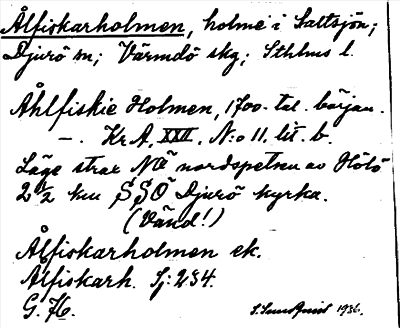 Ålfiskarholmen, holme i Saltsjön;
Djurö sn; Värmdö skg; Sthlms l.
Åhlfiskie Holmen, 1700-tal. början.
—. Kr A, XXII, N:o 11. lit. b.
Läge strax NÖ nordspetsen av Hölö
2 1/2 km SSÖ Djurö kyrka.
(Vänd!)
Ålfiskarholmen ek.
Ålfiskarh. Sj: 234.
G. H.
S. Sundqvist 1936.